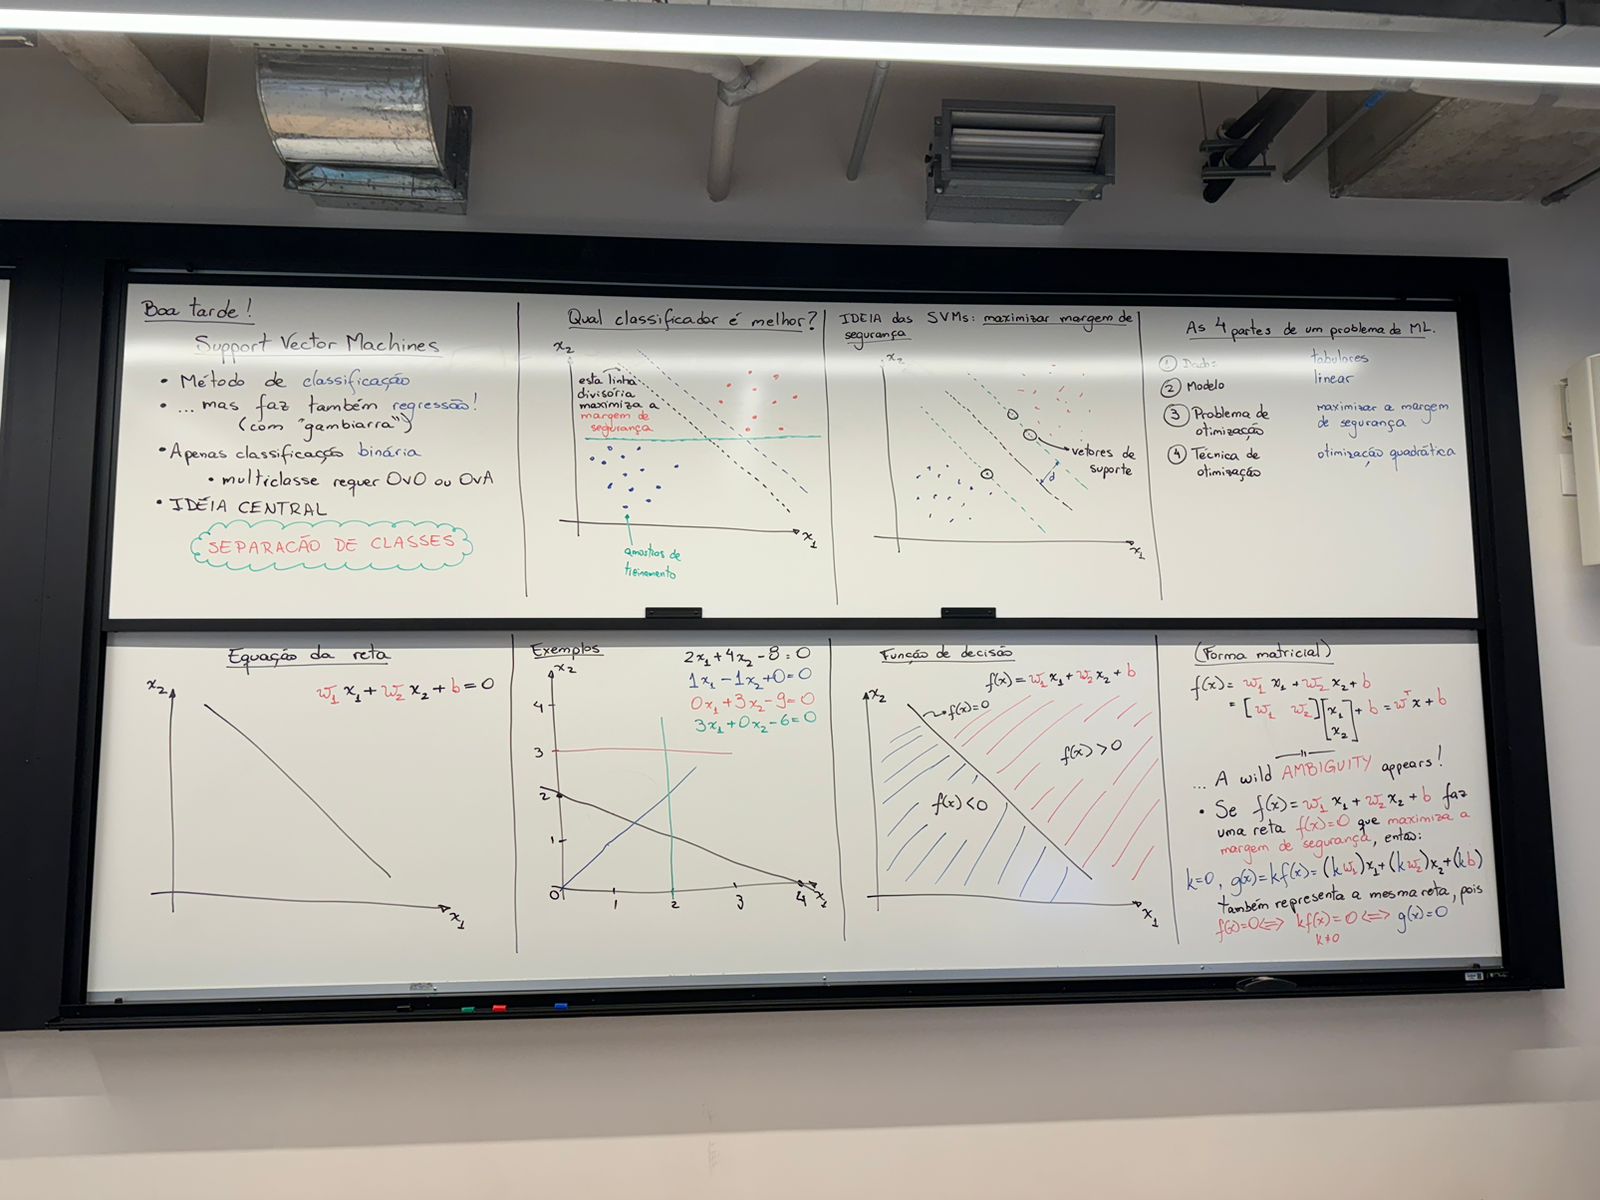 Boa tarde!
Support Vector Machines
• Método de classificação
• ... mas faz também regressão!
(com "gambiarra")
• Apenas classificação binária
• multiclasse requer OvO ou OvA
• IDÉIA CENTRAL
SEPARAÇÃO DE CLASSES
Qual classificador é melhor?
x₂
esta linha
divisória
maximiza a
margem de
segurança
x₁
amostras de
treinamento
IDEIA das SVMs: maximizar margem de
segurança
x₂
vetores de
suporte
d
x₁
As 4 partes de um problema de ML.
① tabulares
② Modelo linear
③ Problema de otimização maximizar a margem de segurança
④ Técnica de otimização otimização quadrática
Equação da reta
x₂
w₁ x₁ + w₂ x₂ + b = 0
x₁
Exemplos
x₂
2x₁ + 4x₂ - 8 = 0
1x₁ - 1x₂ + 0 = 0
0x₁ + 3x₂ - 9 = 0
3x₁ + 0x₂ - 6 = 0
4
3
2
1
0 1 2 3 4 x₁
Função de decisão
f(x) = w₁ x₁ + w₂ x₂ + b
x₂
f(x)=0
f(x) > 0
f(x) < 0
x₁
(Forma matricial)
f(x) = w₁ x₁ + w₂ x₂ + b
= [w₁ w₂] [x₁ x₂] + b = wᵀx + b
... A wild AMBIGUITY appears!
• Se f(x) = w₁ x₁ + w₂ x₂ + b faz
uma reta f(x)=0 que maximiza a
margem de segurança, então:
k=0, g(x) = kf(x) = (kw₁)x₁ + (kw₂)x₂ + (kb)
também representa a mesma reta, pois
f(x)=0 <=> kf(x) = 0 <=> g(x)=0
k≠0